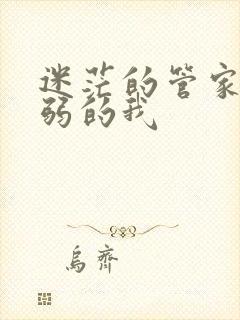 迷茫的管家
弱的我
烏齋